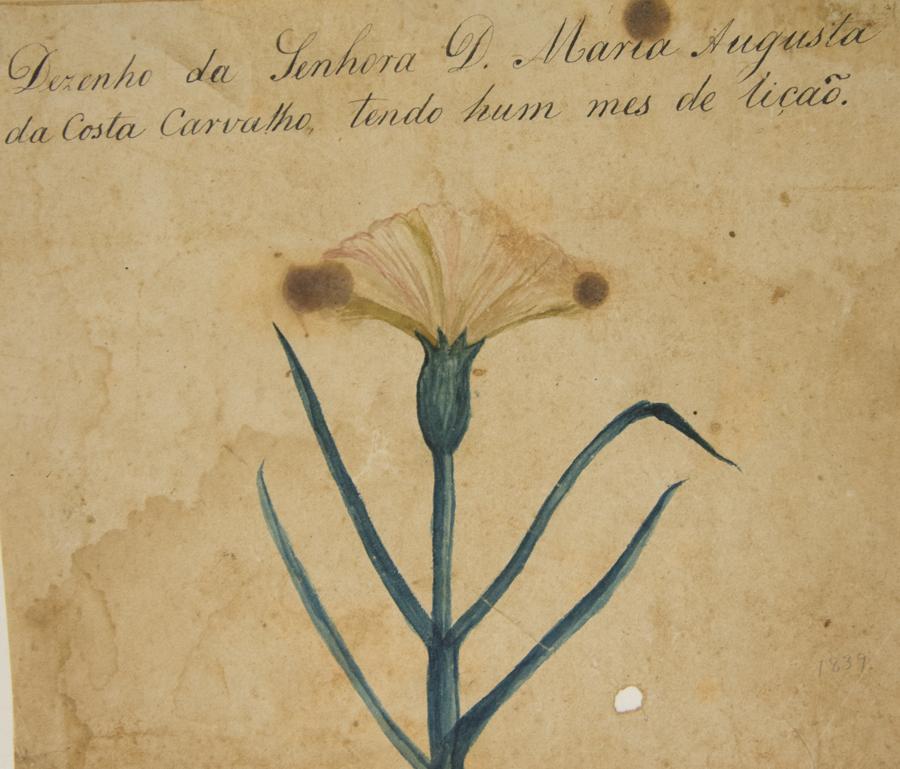 Dezenho da Senhora D. Maria Augusta
da Costa Carvalho, tendo hum mes de liçaõ.
1839.